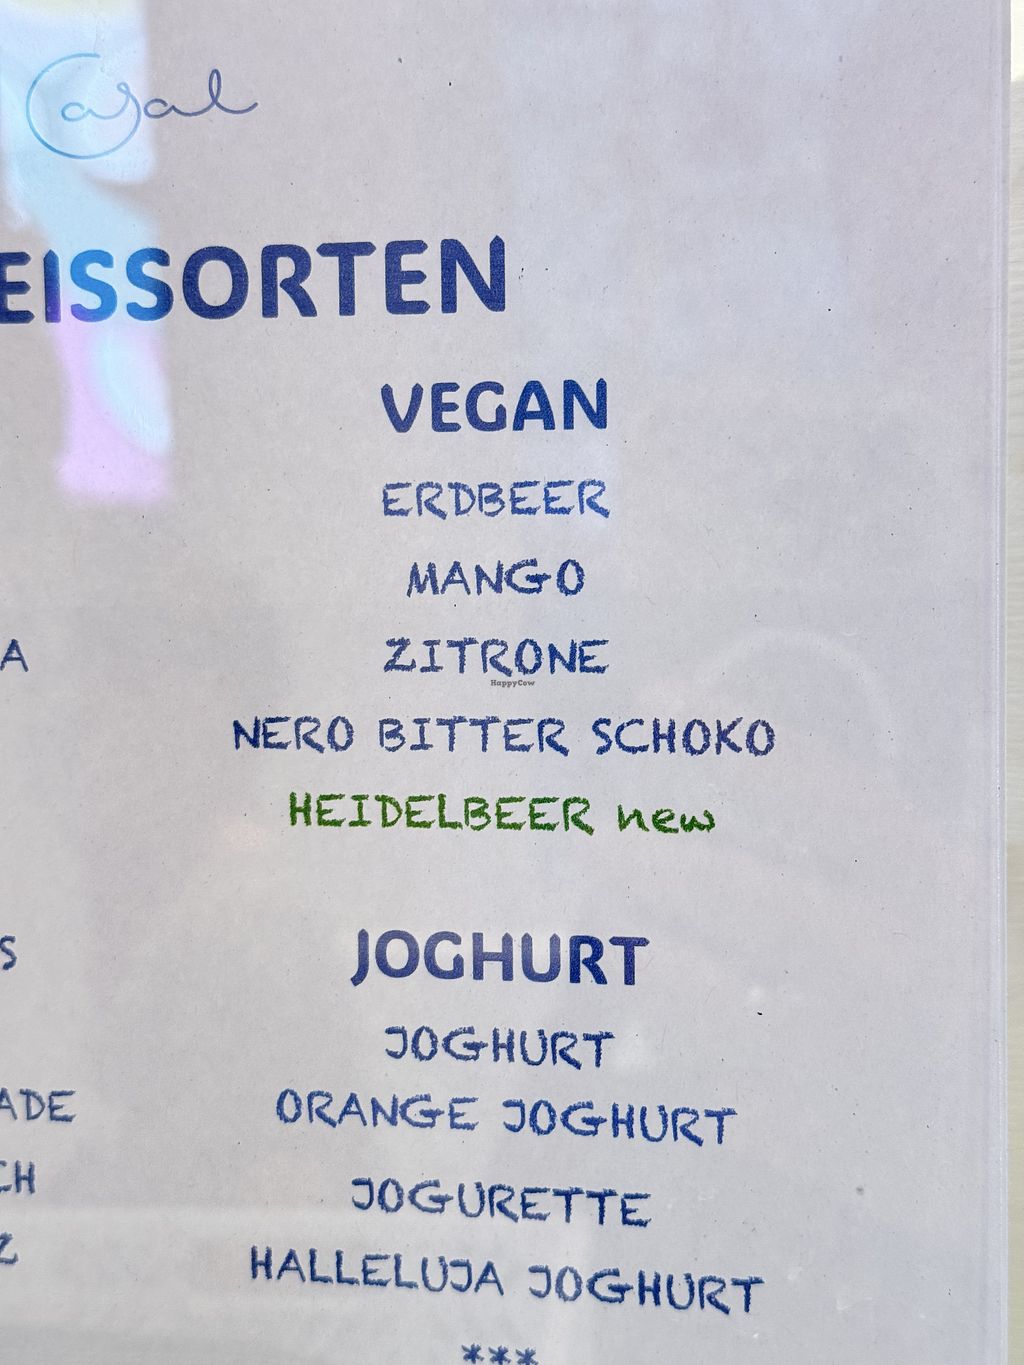 Casal
EISSORTEN
VEGAN
ERDBEER
MANGO
A ZITRONE
HappyCow
NERO BITTER SCHOKO
HEIDELBEER new
S JOGHURT
JOGHURT
ADE ORANGE JOGHURT
CH JOGURETTE
Z HALLELUJA JOGHURT
***